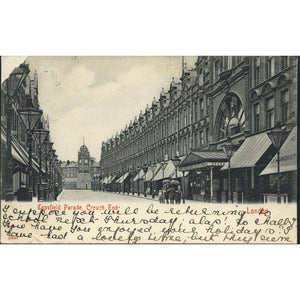 Topsfield Parade, Crouch End.
London.
I suppose you will be returning
school next Thursday; alas! to chilly
how have you enjoyed your holidays I
have had a lovely time, but they seem